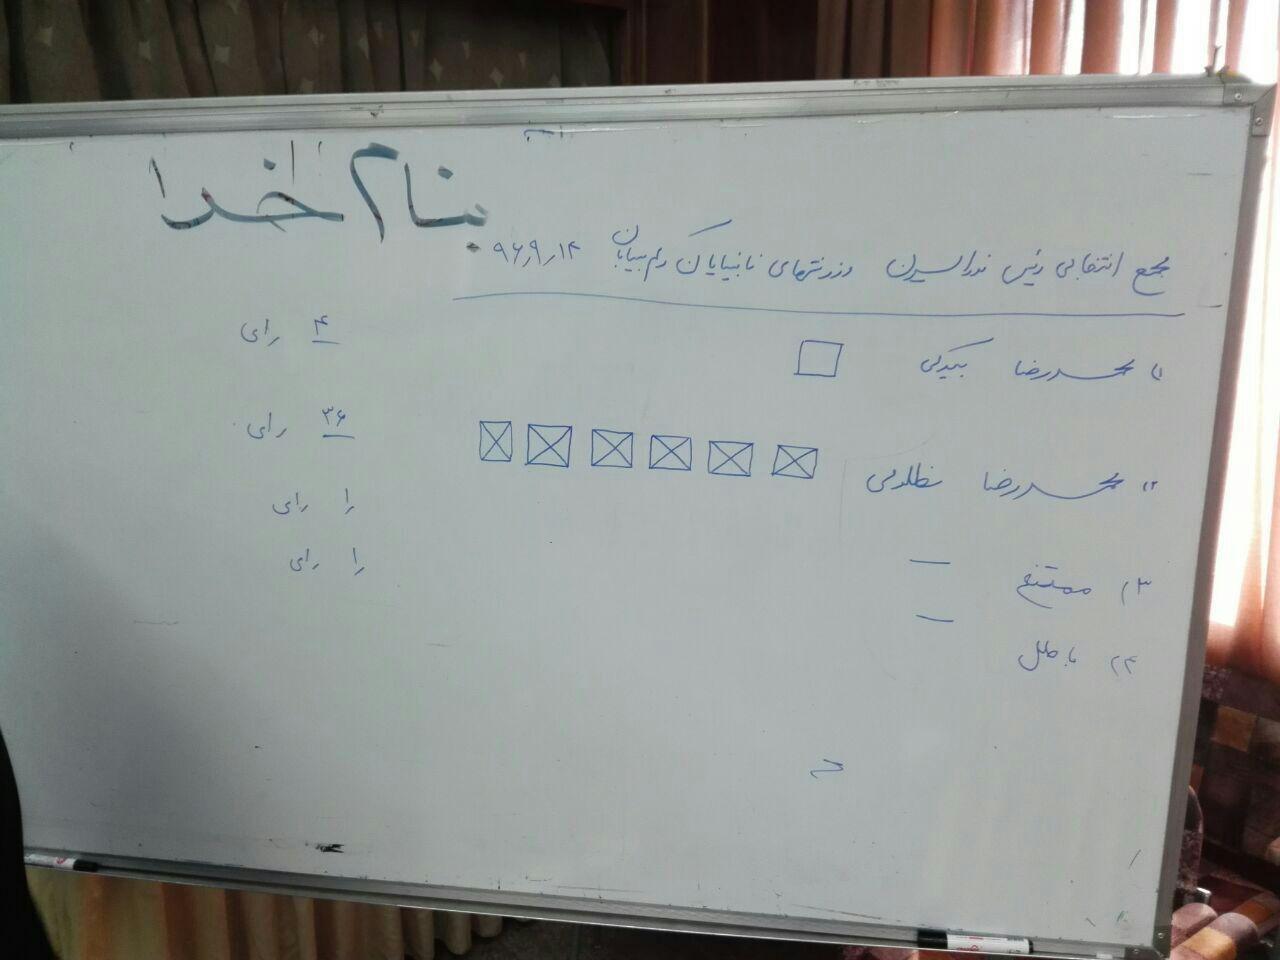 بنام خدا
مجمع انتخابی رئیس فدراسیون ورزشهای نابینایان و کم بینایان ۹۶٫۹٫۱۴
۱) محمدرضا بیدکی ۴ رای
۲) محمدرضا مظلومی ۳۶ رای
۳) ممتنع ۱ رای
۴) باطل ۱ رای